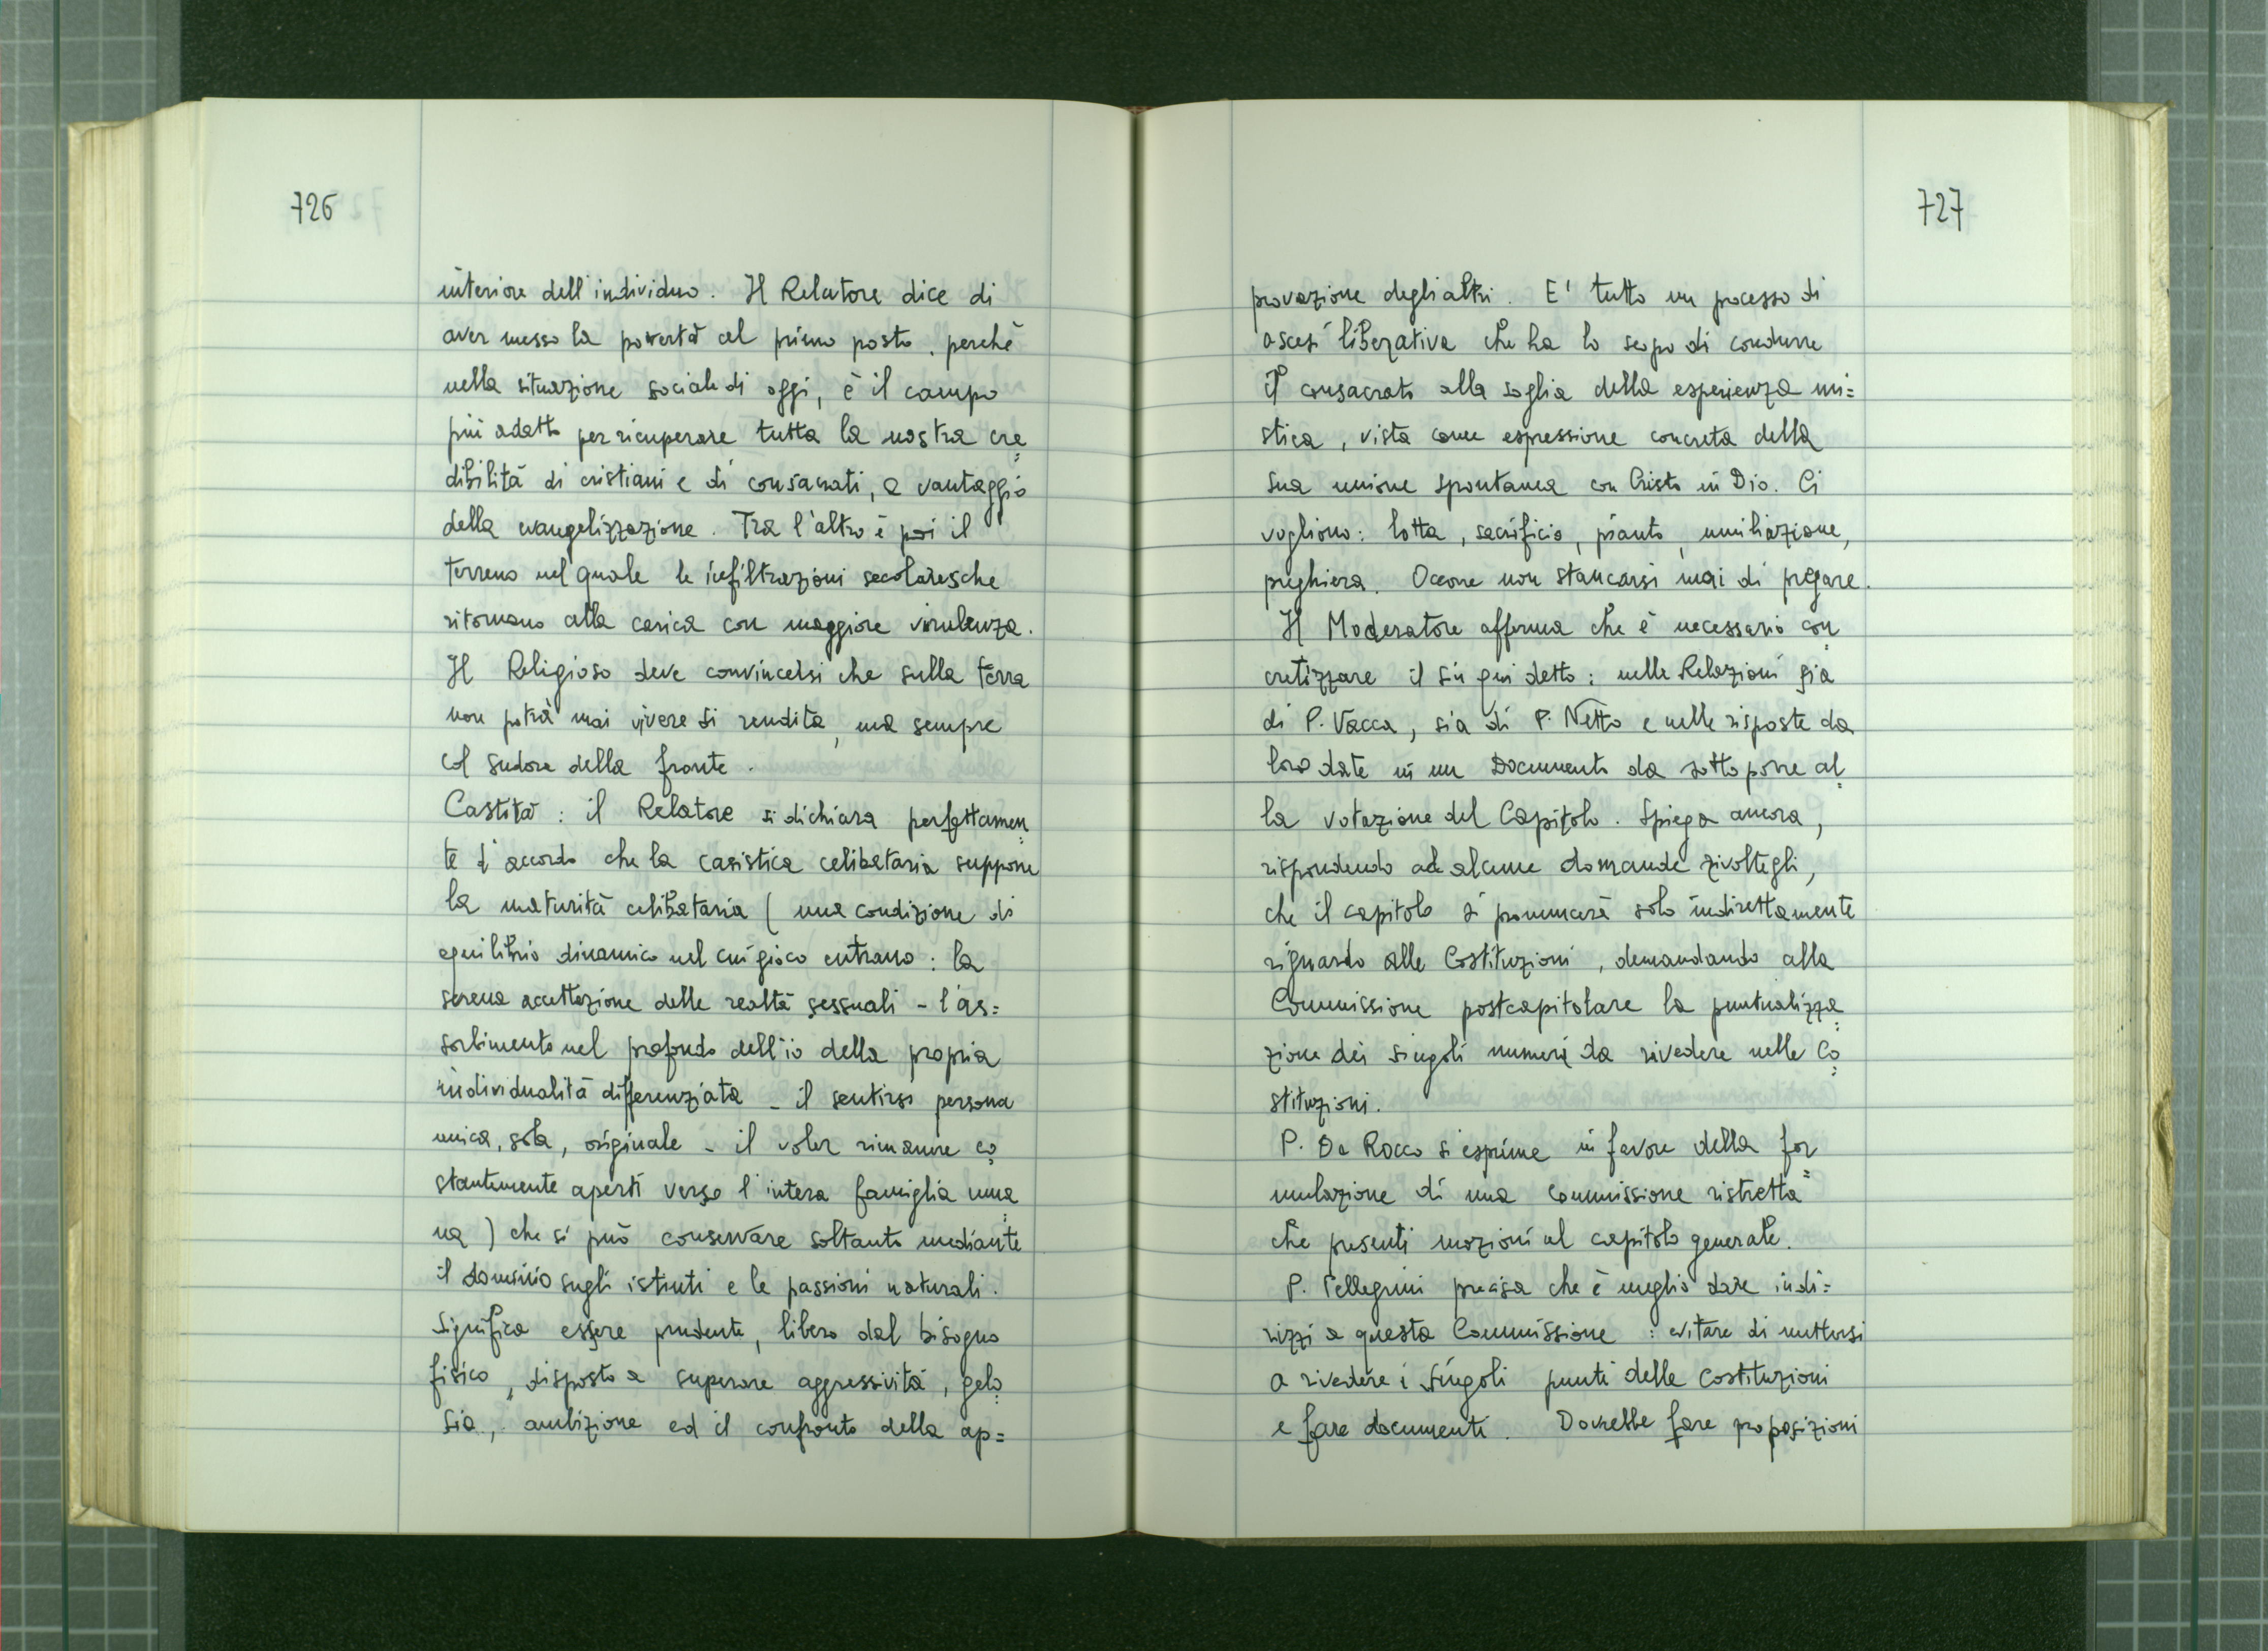 726
interiore dell'individuo. Il Relatore dice di
aver messo la povertà al primo posto, perchè
nella situazione sociale di oggi, è il campo
più adatto per ricuperare tutta la nostra cre=
dibilità di cristiani e di consacrati, a vantaggio
della evangelizzazione. Tra l'altro è poi il
terreno nel quale le infiltrazioni secolaresche
ritornano alla carica con maggiore virulenza.
Il Religioso deve convincersi che sulla terra
non potrà mai vivere di rendita, ma sempre
col sudore della fronte.
Castità: il Relatore si dichiara perfettamen=
te d'accordo che la casistica celibataria suppone
la maturità celibataria (una condizione di
equilibrio dinamico nel cui gioco entrano: la
serena accettazione delle realtà sessuali - l'as=
sorbimento nel profondo dell'io della propria
individualità differenziata - il sentirsi persona
unica, sola, originale - il voler rimanere co=
stantemente aperti verso l'intera famiglia uma=
na) che si può conservare soltanto mediante
il dominio sugli istinti e le passioni naturali.
Significa essere prudente, libero dal bisogno
fisico, disposto a superare aggressività, gelo=
sia, ambizione ed il confronto della ap=
727
provazione degli altri. E' tutto un processo di
ascesi liberativa che ha lo scopo di condurre
il consacrato alla soglia della esperienza mi=
stica, vista come espressione concreta della
sua unione spontanea con Cristo in Dio. Ci
vogliono: lotta, sacrificio, pianto, umiliazione,
preghiera. Occorre non stancarsi mai di pregare.
Il Moderatore afferma che è necessario con=
cretizzare il sin qui detto: nelle Relazioni sia
di P. Vacca, sia di P. Netto e nelle risposte da
loro date in un Documento da sottoporre al=
la votazione del Capitolo. Spiega ancora,
rispondendo ad alcune domande rivoltegli,
che il capitolo si pronuncerà solo indirettamente
riguardo alle Costituzioni, demandando alla
Commissione postcapitolare la puntualizza=
zione dei singoli numeri da rivedere nelle Co=
stituzioni.
P. Da Rocco si esprime in favore della for=
mulazione di una commissione ristretta
che presenti mozioni al capitolo generale.
P. Pellegrini precisa che è meglio dare indi=
rizzi a questa Commissione: evitare di mettersi
a rivedere i singoli punti delle costituzioni
e fare documenti. Dovrebbe fare proposizioni